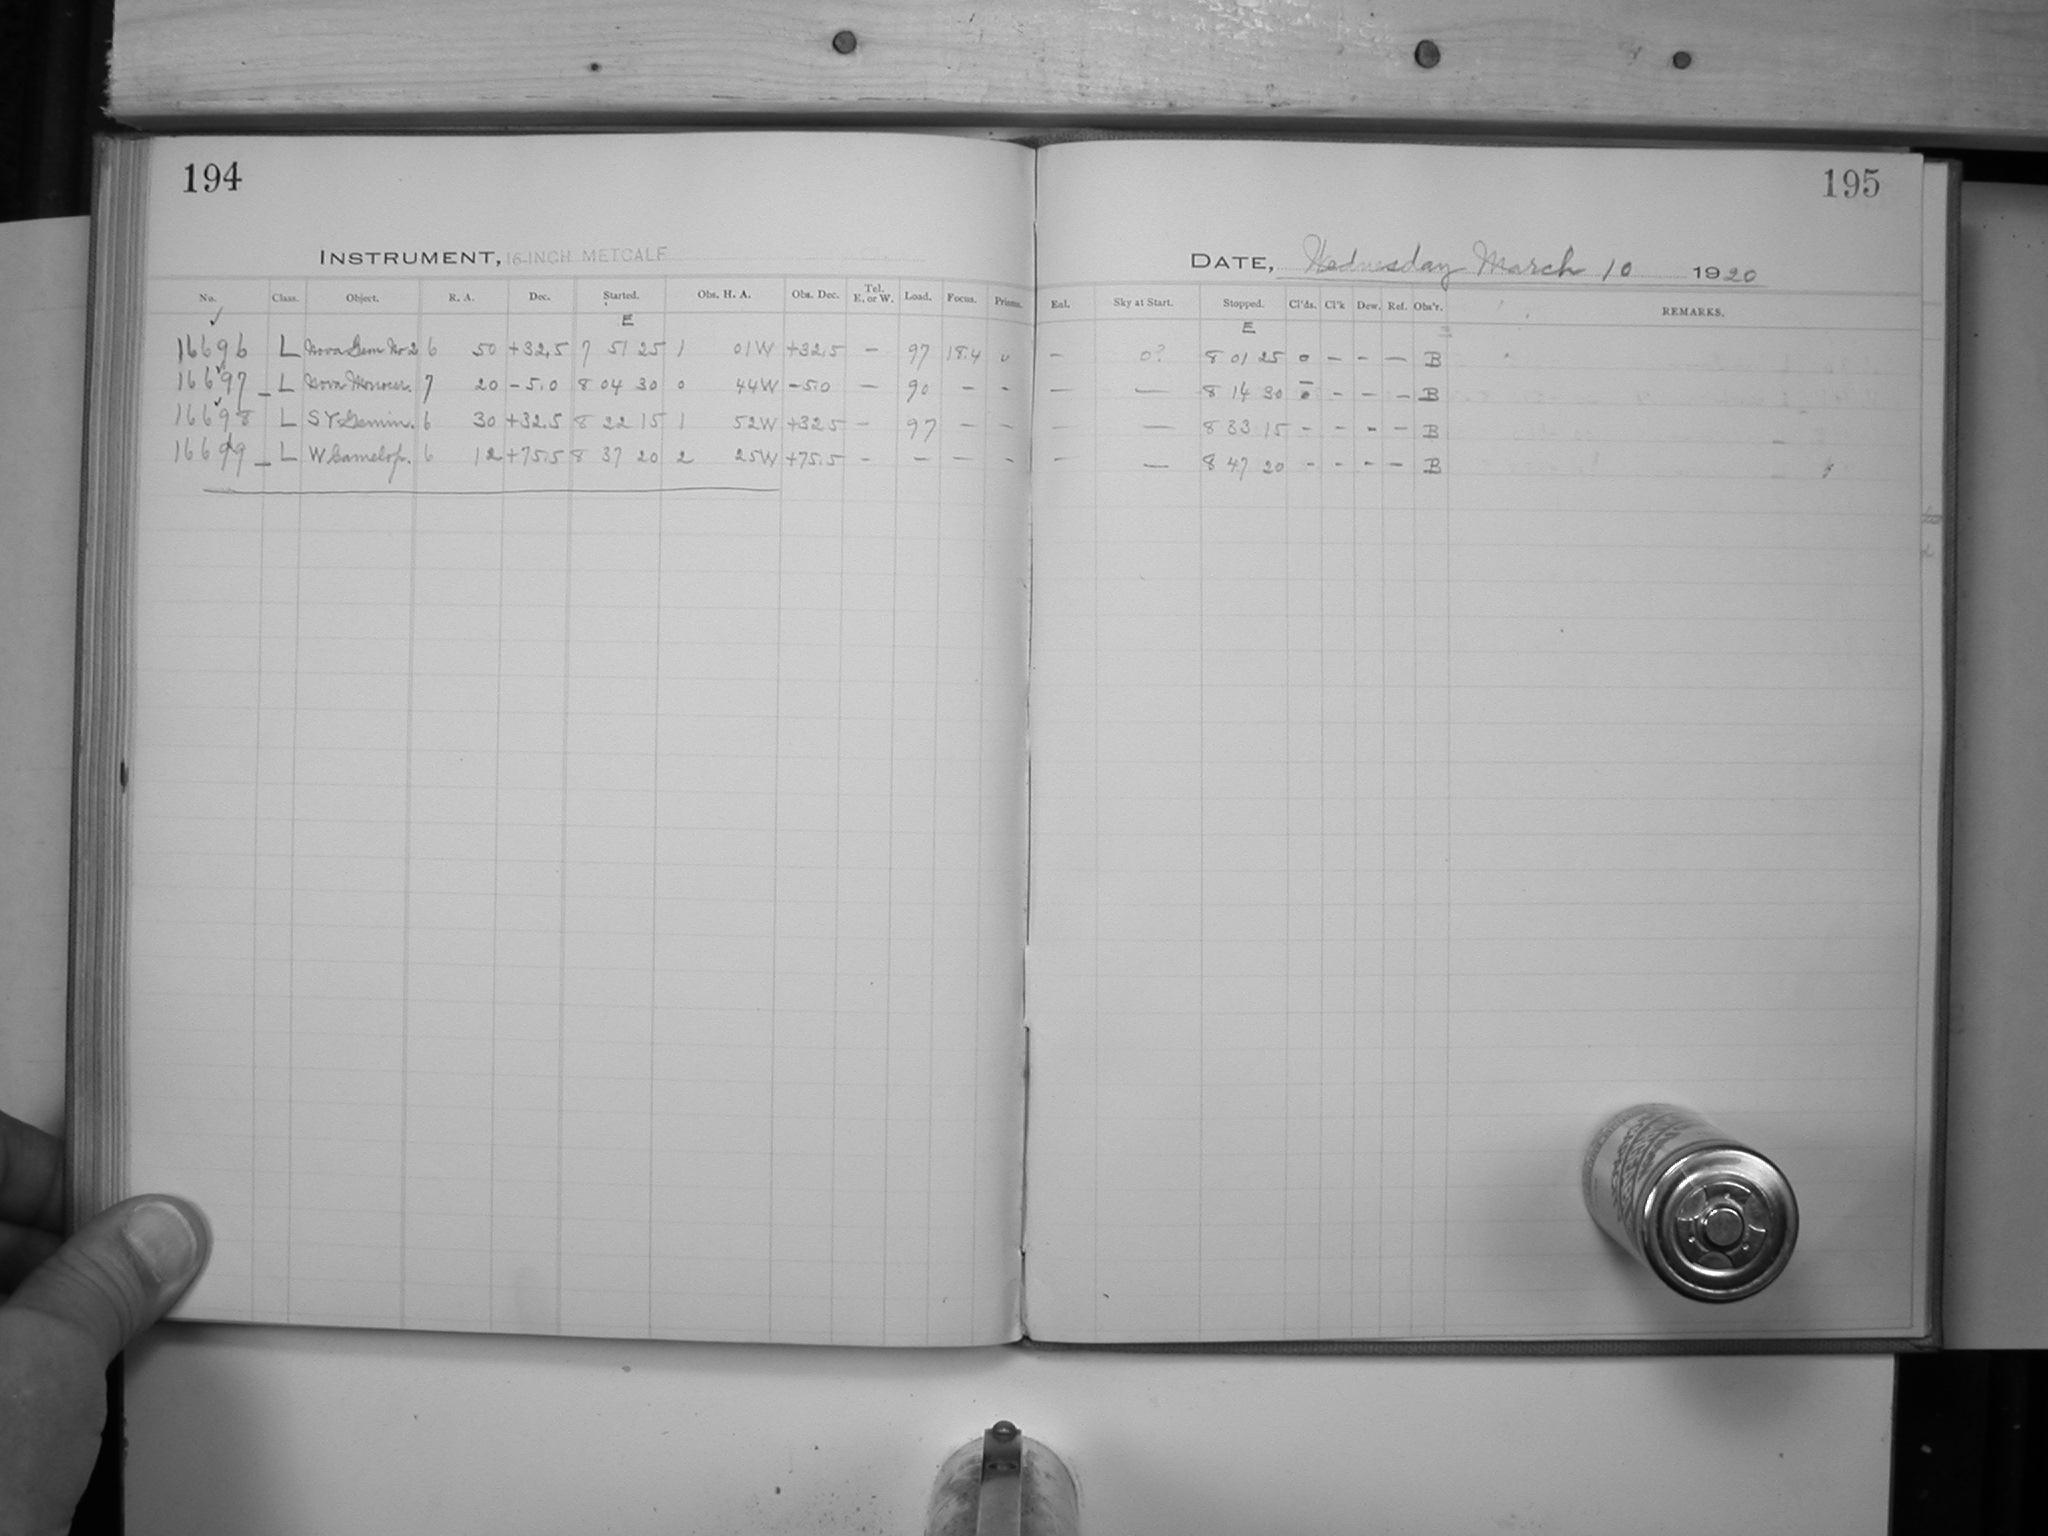 194
195
INSTRUMENT, 16-INCH METCALF
DATE, Wednesday March 10 1920
No. Class. Object. R. A. Dec. Started. Obs. H. A. Obs. Dec. Tel. E. or W. Load. Focus. Prisms. Enl. Sky at Start. Stopped. Cl'ds. Cl'k Dew. Ref. Obs'r. REMARKS.
E E
16696 L Nova Gem No 2 6 50 +32.5 7 51 25 1 01W +32.5 — 97 18.4 0 — 0? 8 01 25 0 — — — B
16697 _ L Nova Monocer. 7 20 -5.0 8 04 30 0 44W -5.0 — 90 — — — — 8 14 30 0 — — — B
16698 L SY Gemin. 6 30 +32.5 8 22 15 1 52W +32.5 — 97 — — — — 8 33 15 — — — — B
16699 _ L W Camelop. 6 12 +75.5 8 37 20 2 25W +75.5 — — — — — — 8 47 20 — — — — B